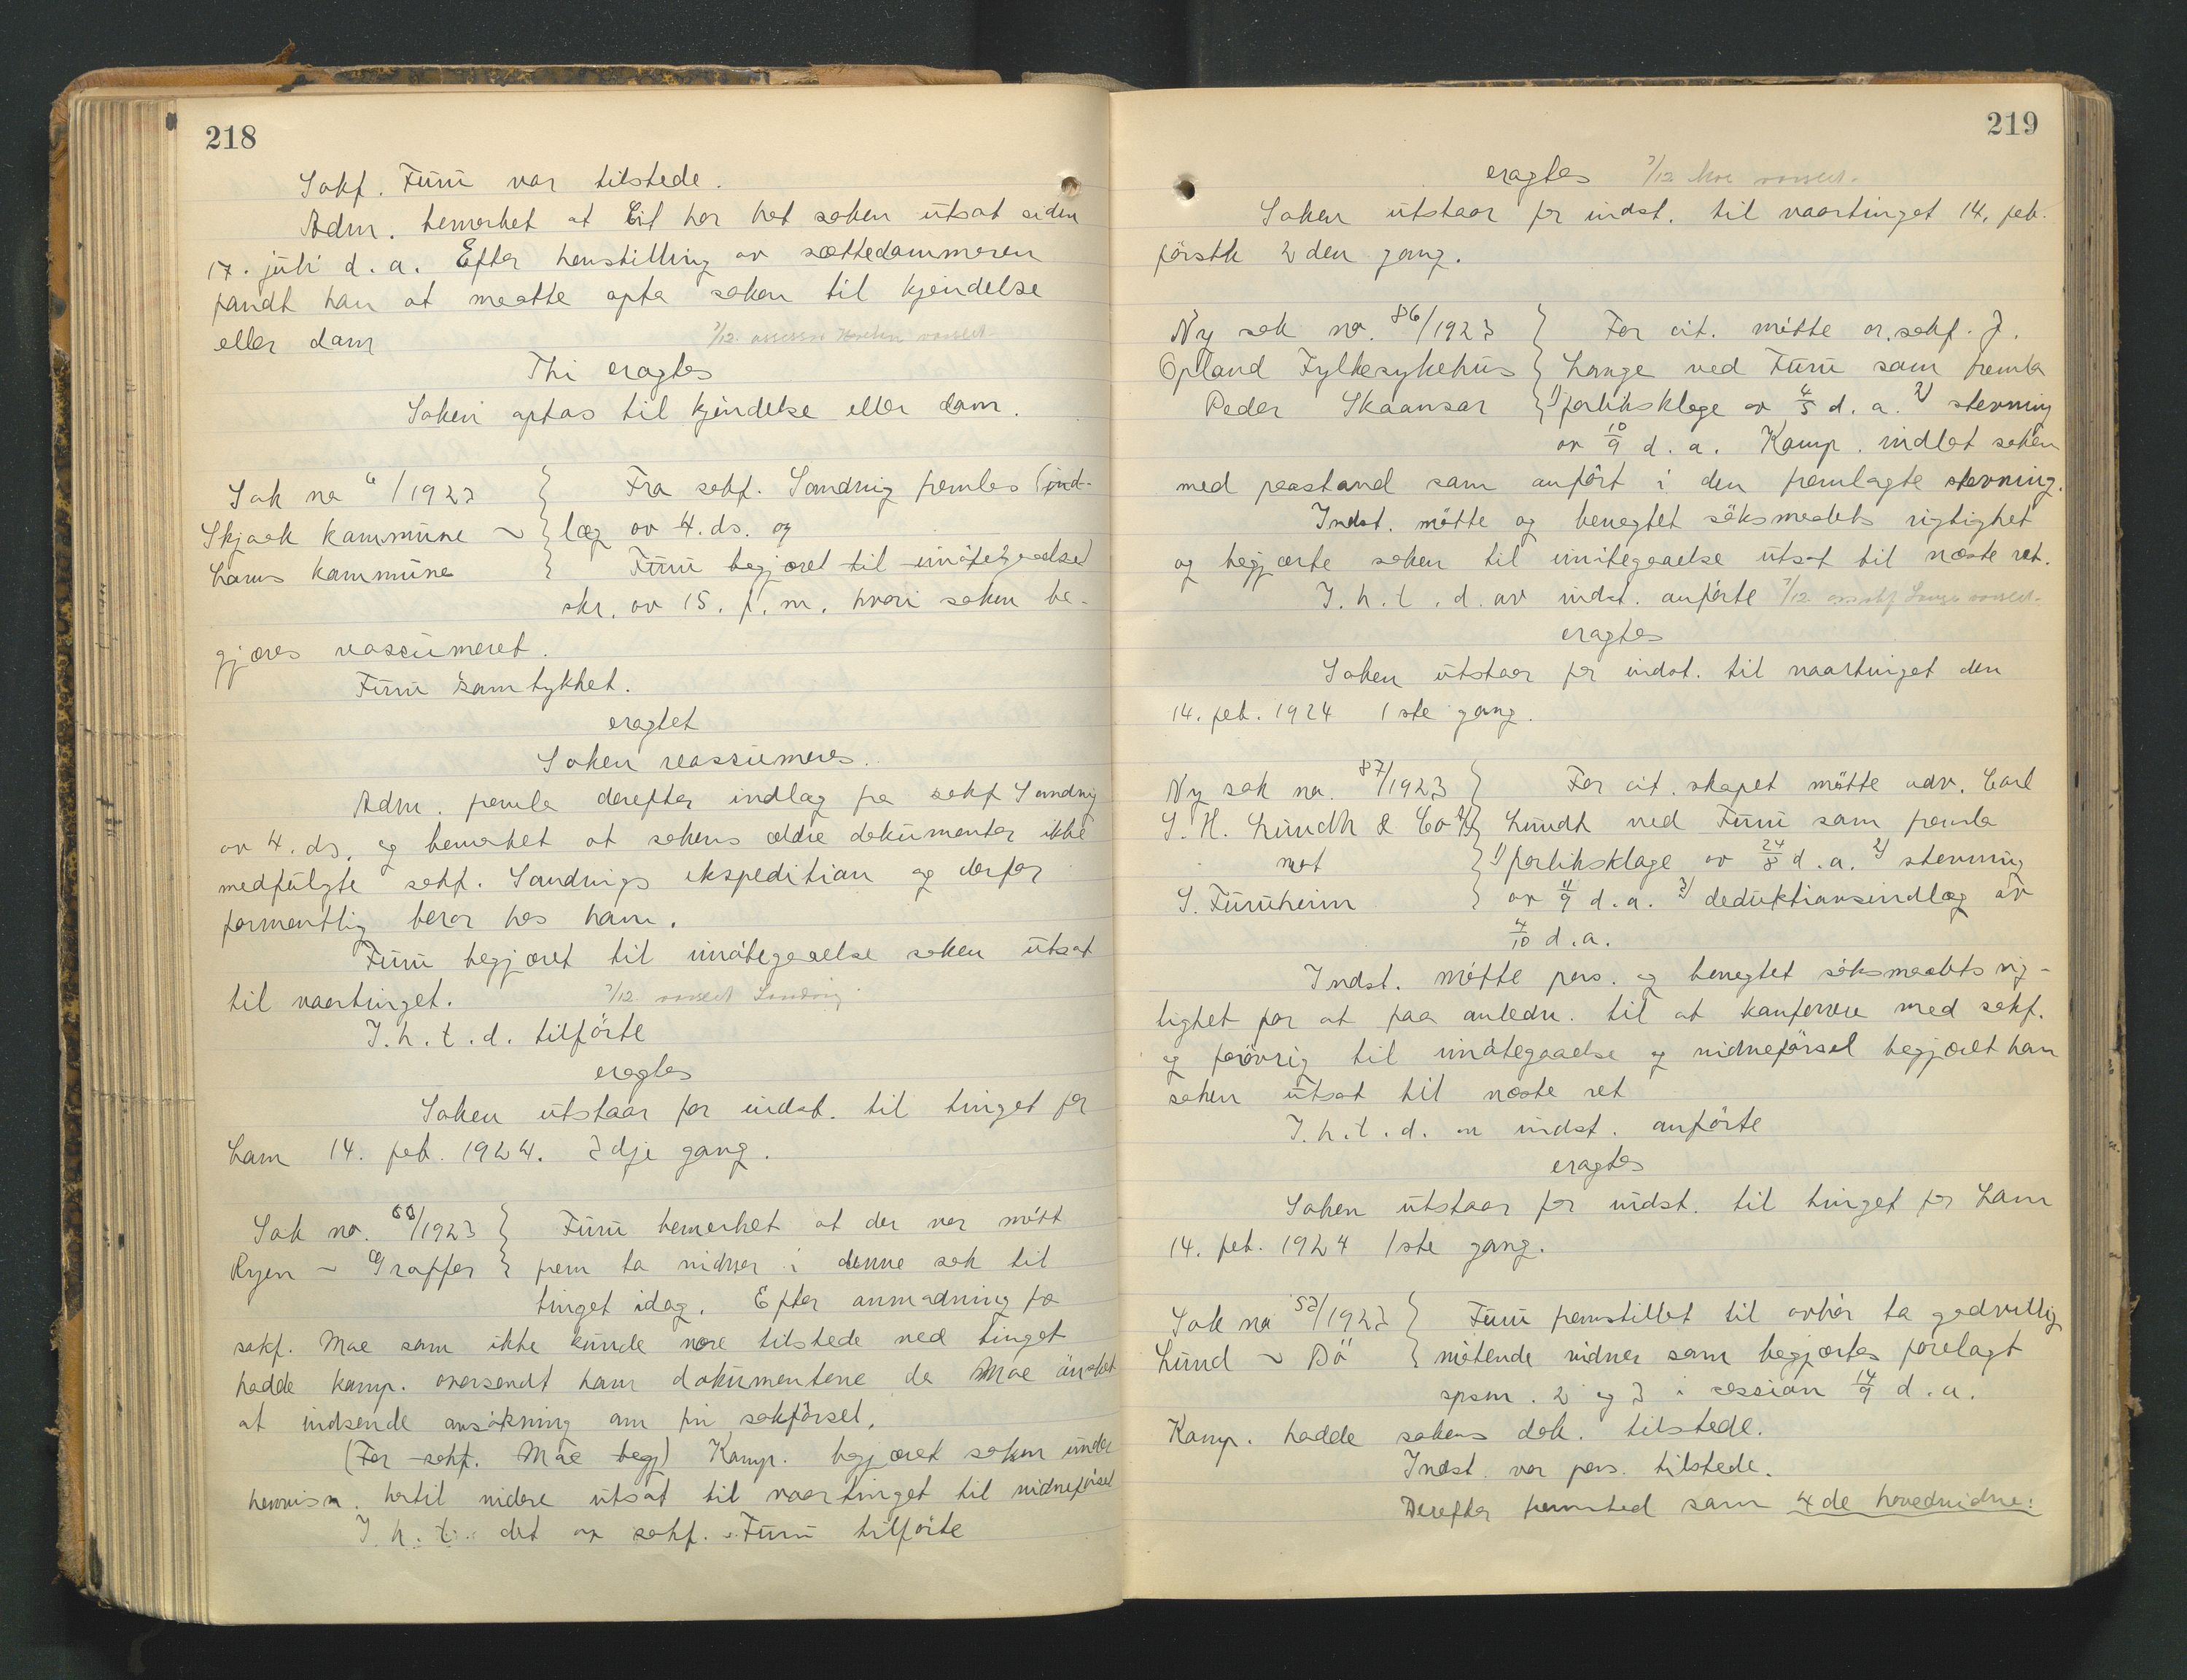 218
Sakf. Furu var tilstede.
Adm. bemerket at Cit har hat saken utsat siden
17. juli d. a. Efter henstilling av sættedommeren
fandt han at maatte opta saken til kjendelse
eller dom
7/12. assessor varslet
Thi eragtes
Saken optas til kjendelse eller dom.
Sak no 6/1923 } Fra sakf. Sandvig fremlas (ind-
Skjaak kommune ~ } læg av 4. ds. og
Loms kommune } Furu begjæret til imøtegaaelse)
skr. av 15. f. m. hvori saken be-
gjæres reassumeret.
Furu samtykket.
eragtet
Saken reassumeres.
Adm. fremla derefter indlæg fra sakf Sandvig
av 4. ds. og bemerket at sakens ældre dokumenter ikke
medfulgte sakf. Sandvigs ekspedition og derfor
formentlig beror hos ham.
Furu begjæret til imøtegaaelse saken utsat
til vaartinget.
7/12 varslet Sandvig
I. h. t. d. tilførte
eragtes
Saken utstaar for indst. til tinget for
Lom 14. feb. 1924. 3dje gang.
Sak no. 68/1923 } Furu bemerket at der var møtt
Ryen ~ Graffer } frem to vidner i denne sak til
tinget idag. Efter anmodning fra
sakf. Moe som ikke kunde være tilstede ved tinget
hadde komp. oversendt ham dokumentene da Moe ønsket
at indsende ansøkning om fri sakførsel.
(For sakf. Moe begj) Komp. begjæret saken under
henvisn. hertil videre utsat til vaartinget til vidneførsel
I. h. t. det av sakf. Furu tilførte
219
eragtes
7/12 Moe varslet.
Saken utstaar for indst. til vaartinget 14. feb.
førstk 2den gang.
Ny sak no. 86/1923 } For cit. møtte or. sakf. J.
Opland Fylkesykehus } Lange ved Furu som fremla
Peder Skaansar } 1) forliksklage av 4/5 d. a. 2) stevning
av 10/9 d. a. Komp. indlot saken
med paastand som anført i den fremlagte stevning.
Indst. møtte og benegtet søksmaalets rigtighet
og begjærte saken til imøtegaaelse utsat til næste ret.
I. h. t. d. av indst. anførte
7/12 orsakf Lange varslet.
eragtes
Saken utstaar for indst. til vaartinget den
14. feb. 1924 1ste gang.
Ny sak no. 87/1923 } For cit. skapet møtte adv. Carl
S. H. Lundh & Co } Lundh ved Furu som fremla
mot } 1) forliksklage av 24/8 d. a. 2) stevning
S. Furuheim } av 11/9 d. a. 3) deduktionsindlæg av
4/10 d. a.
Indst. møtte pers. og benegtet søksmaalets rig-
tighet for at faa anledn. til at konferere med sakf.
og forøvrig til imøtegaaelse og vidneførsel begjæret han
saken utsat til næste ret
I. h. t. d. av indst. anførte
eragtes
Saken utstaar for indst. til tinget for Lom
14. feb. 1924 1ste gang.
Sak no 53/1923 } Furu fremstillet til avhør to godvillig
Lund ~ Bø } møtende vidner som begjærtes forelagt
spsm. 2 og 3 i session 14/9 d. a.
Komp. hadde sakens dok. tilstede.
Indst. var pers. tilstede.
Derefter fremsted som 4de hovedvidne: